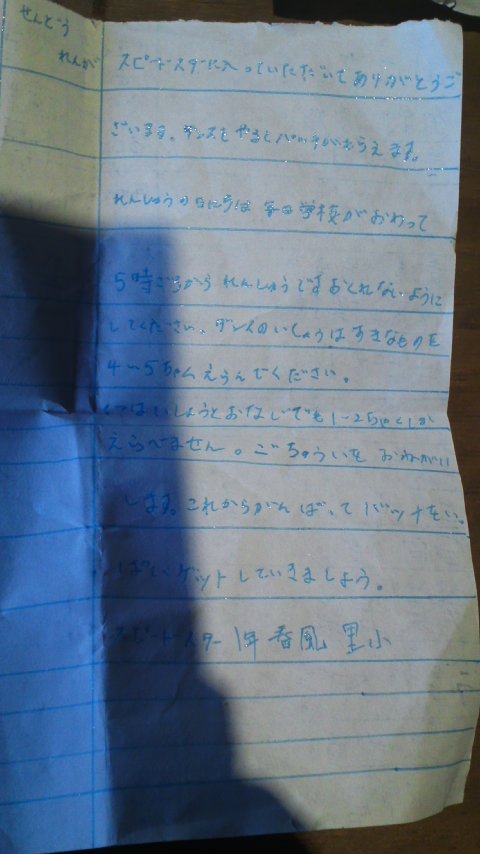 せんどう
れんが
スピードスターに入っていただいてありがとうご
ざいます。ダンスをやるとバッチがもらえます。
れんしゅうの日にちは毎日学校がおわって
5時ごろかられんしゅうですおくれないように
してください。ダンスのいしょうはすきなものを
4〜5ちゃくえらんでください。
くつはいしょうとおなじでも1〜2ちゃくしか
えらべません。ごちゅういをおねがい
します。これからがんばってバッチをい。
ぱいゲットしていきましょう。
スピードスター 1年 春風 里小